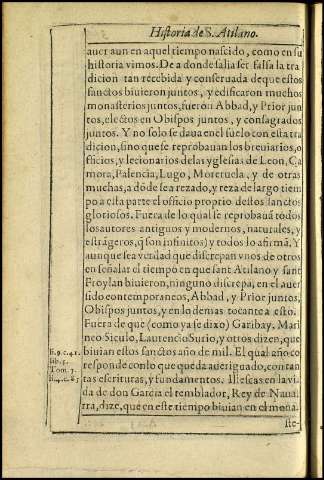 Historia de S. Atilano.
auer aun en aquel tiempo nascido, como en su
historia vimos. De a donde salia ser falsa la tra
dicion tan recebida y conseruada de que estos
sanctos biuieron juntos, y edificaron muchos
monasterios juntos, fueron Abbad, y Prior jun
tos, electos en Obispos juntos, y consagrados
juntos. Y no solo se daua en el suelo con esta tra
dicion, sino que se reprobauan los breuiarios, o
fficios, y lecionarios de las yglesias de Leon, Ça
mora, Palencia, Lugo, Moreruela, y de otras
muchas, a dõde se a rezado, y reza de largo tiem
po a esta parte el officio proprio destos sanctos
gloriosos. Fuera de lo qual se reprobauã todos
los autores antiguos y modernos, naturales, y
estrãgeros, q̃ son infinitos) y todos lo afirmã. Y
aunque sea verdad que discrepan vnos de otros
en señalar el tiempo en que sant Atilano y sant
Froylan biuieron, ninguno discrepa, en el auer
sido contemporaneos, Abbad, y Prior juntos,
Obispos juntos, y en lo demas tocante a esto.
Fuera de que (como ya se dixo) Garibay, Mari
neo Siculo, Laurencio Surio, y otros dizen, que
biuian estos sanctos año de mil. El qual año co
responde con lo que queda aueriguado, con tan
tas escrituras, y fundamentos. Illescas en la vi
da de don Garcia el temblador, Rey de Naua
rra, dize, que en este tiempo biuian en el mona.
ste-
lib. 5.
Tom. 5.